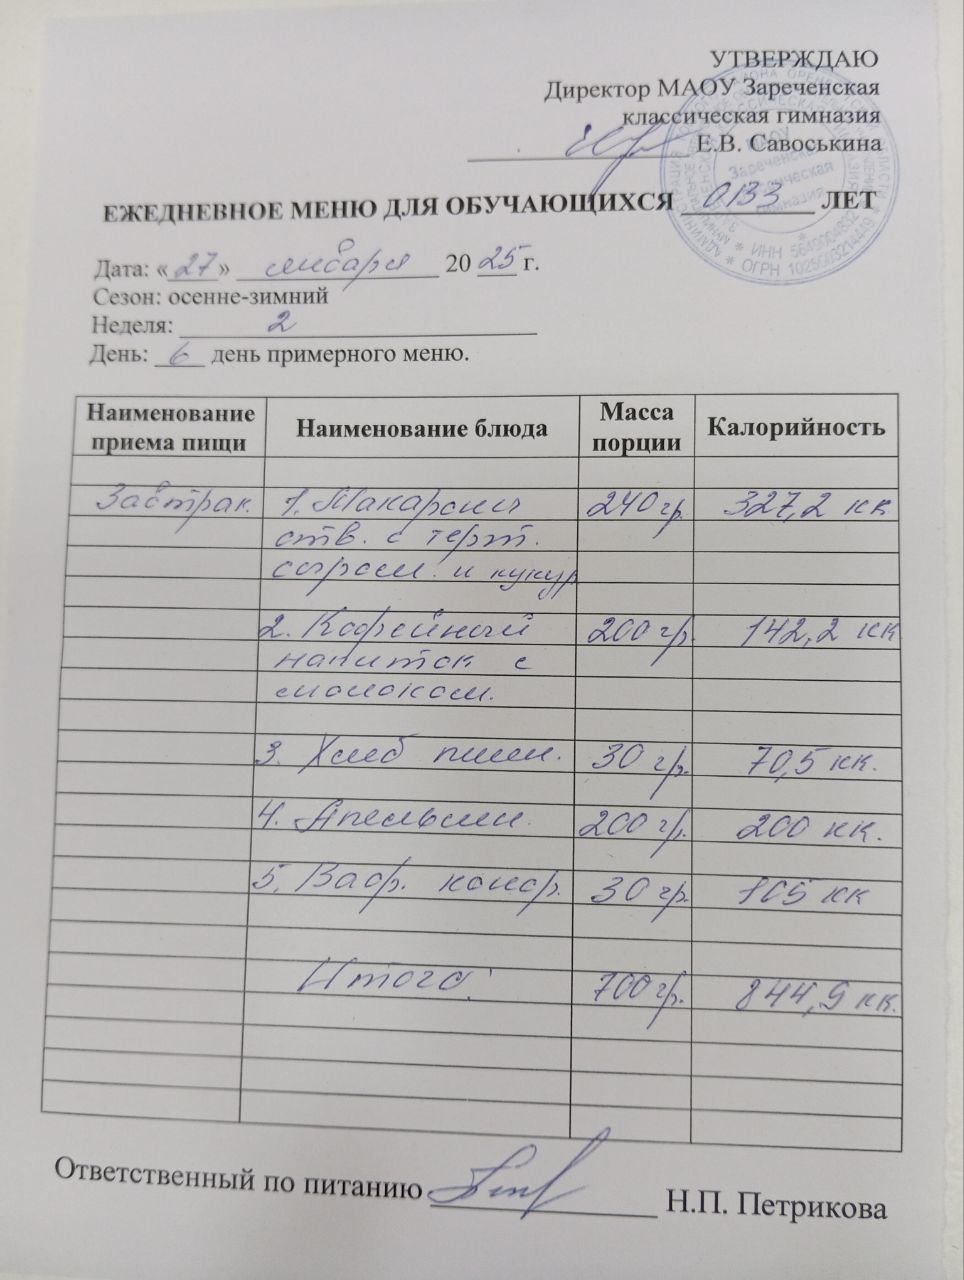 УТВЕРЖДАЮ
Директор МАОУ Зареченская
классическая гимназия
Е.В. Савоськина
ЕЖЕДНЕВНОЕ МЕНЮ ДЛЯ ОБУЧАЮЩИХСЯ ОВЗ ЛЕТ
Дата: «27» января 2025 г.
Сезон: осенне-зимний
Неделя: 2
День: 6 день примерного меню.
Наименование приема пищи Наименование блюда Масса порции Калорийность
Завтрак. 1. Макароны 240 гр. 327,2 кк
отв. с терт.
сыром. и кукур
2. Кофейный 200 гр. 142,2 кк
напиток с
молоком.
3. Хлеб пшен. 30 гр. 70,5 кк.
4. Апельсин. 200 гр. 200 кк.
5. Ваф. конф. 30 гр. 105 кк
Итого: 700 гр. 844,9 кк.
Ответственный по питанию Н.П. Петрикова